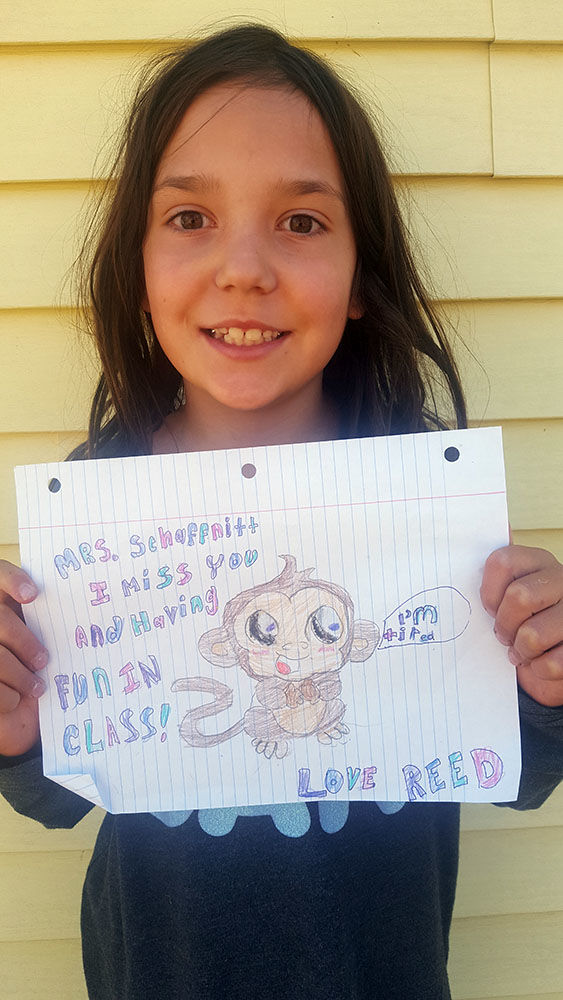 MRS. Schuffnitt
I miss you
AND HAViNg
FUN IN
CLASS!
i'm
tired
LOVE REED